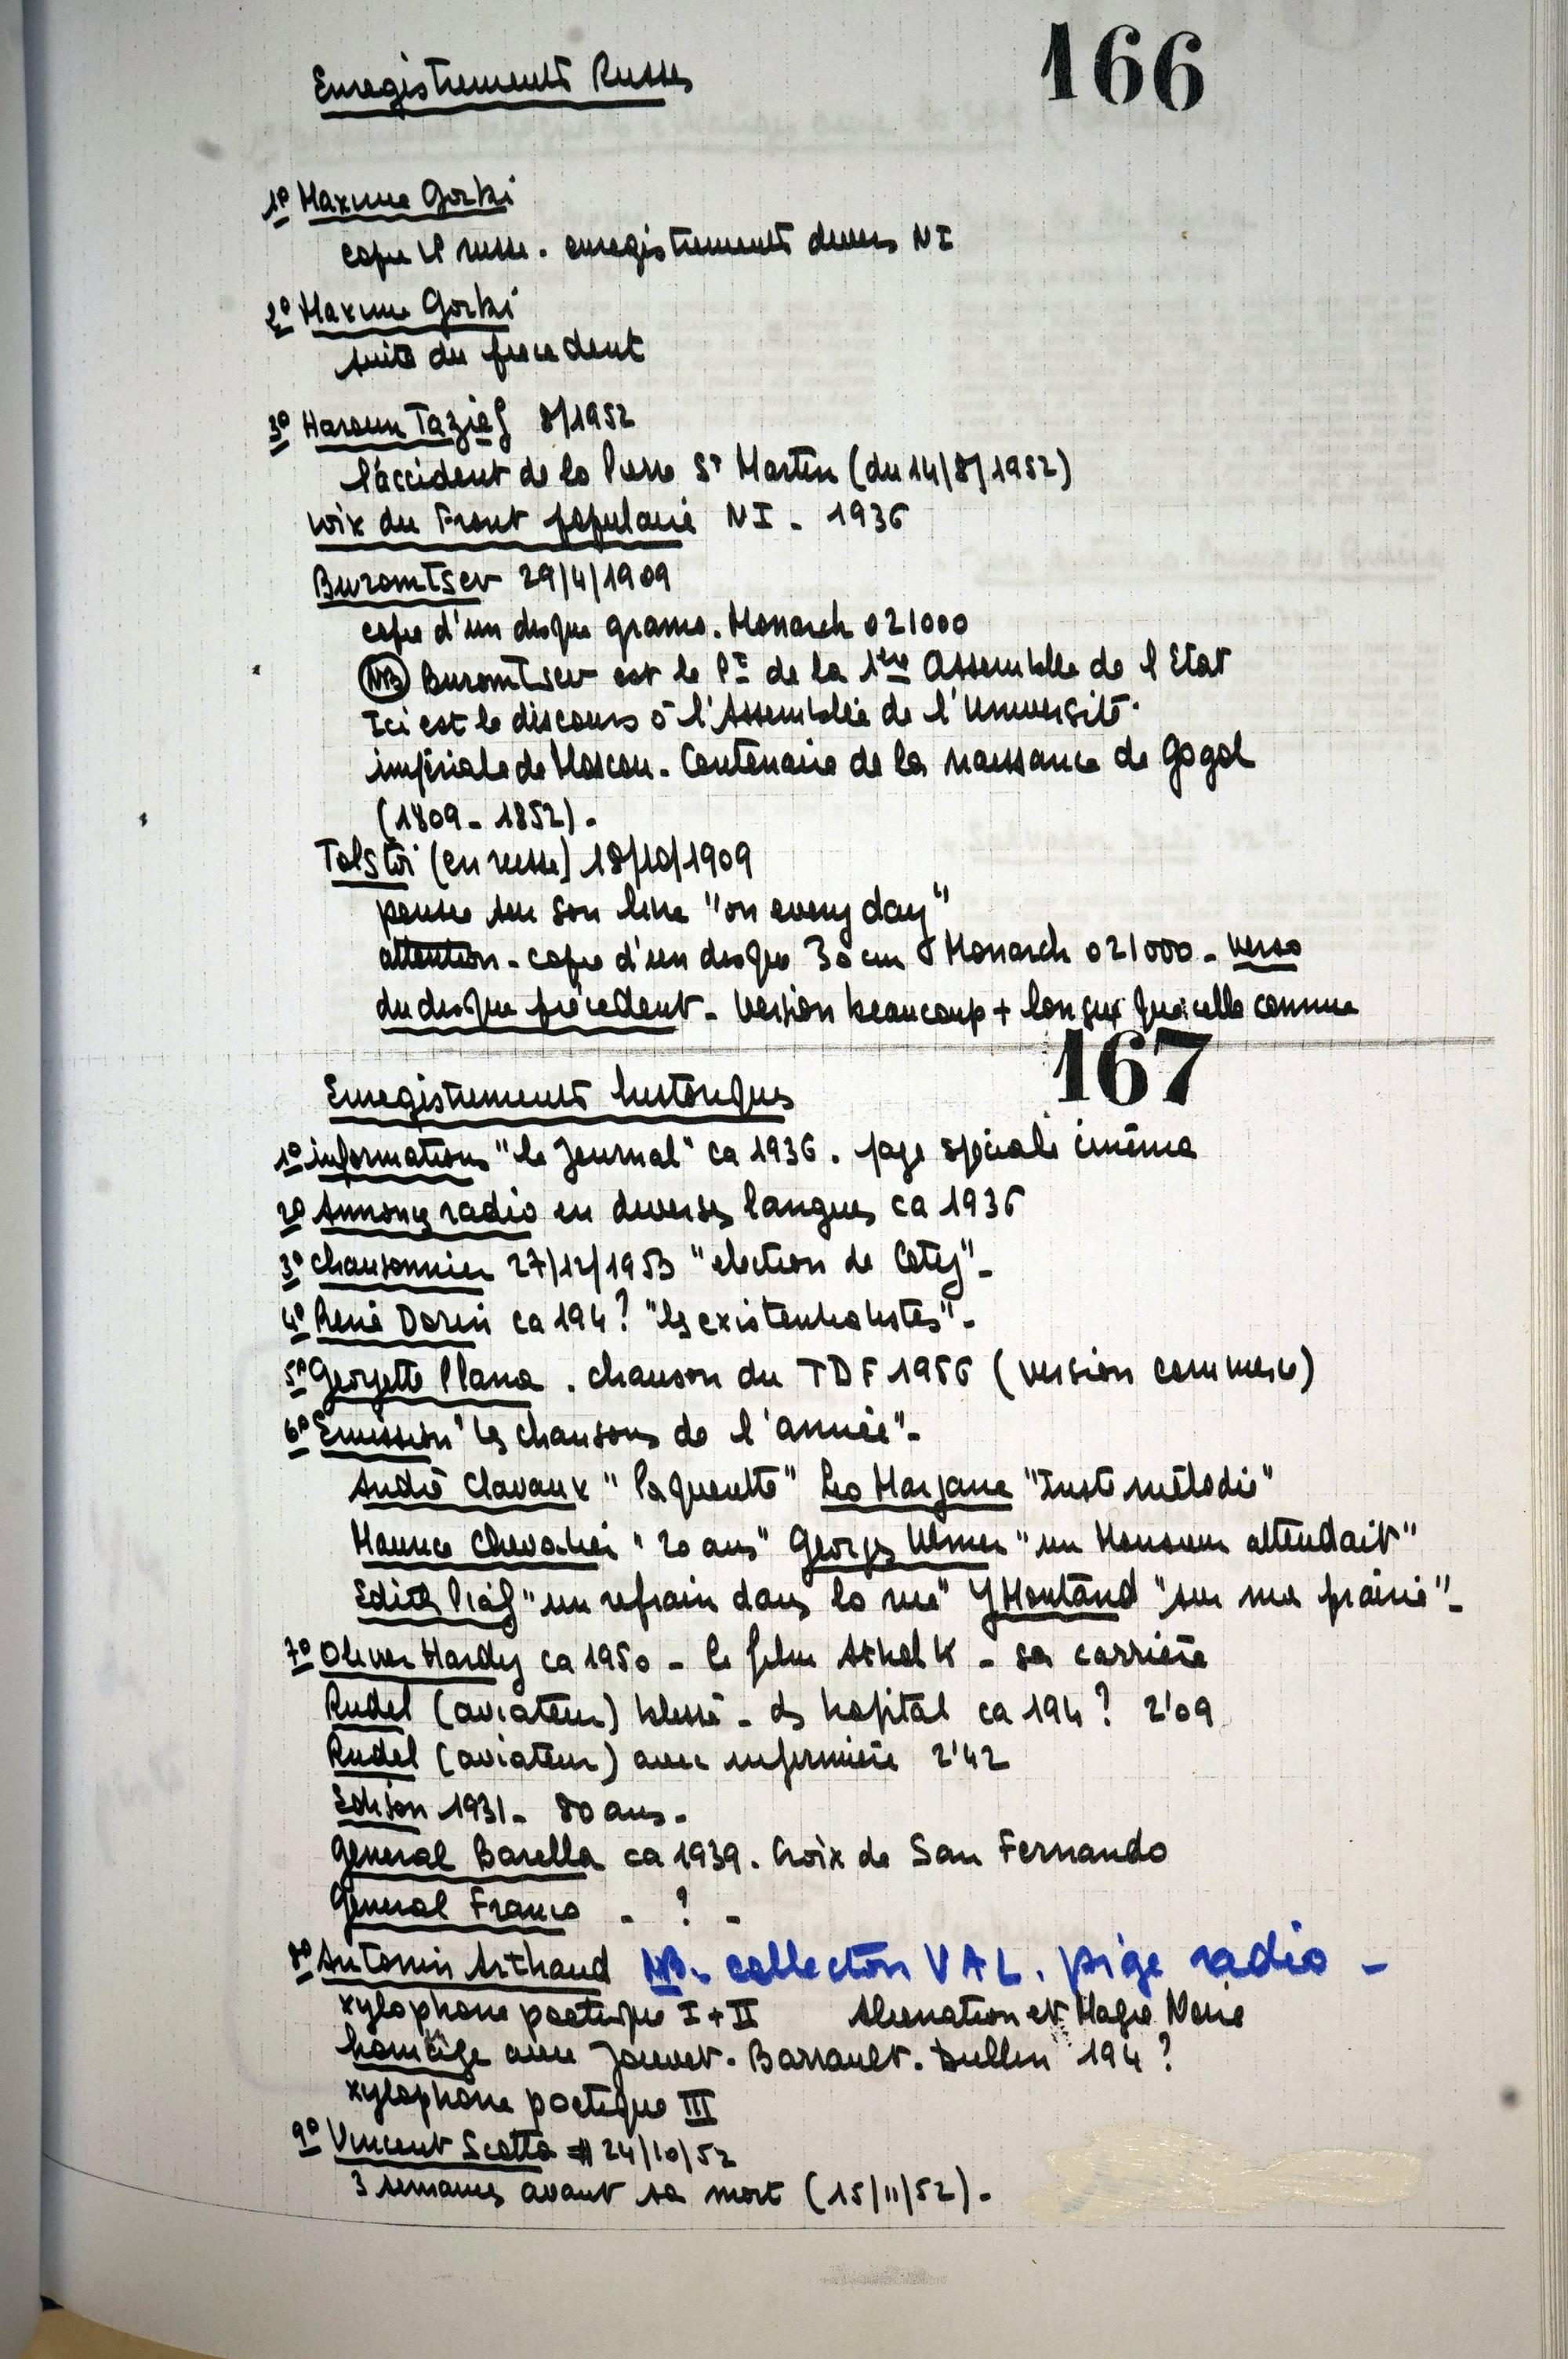 166
Enregistrements Russes
1° Maxime Gorki
copie russe. enregistrements divers NI
2° Maxime Gorki
suite du precedent
3° Haroun Tazief 8/1952
l'accident de la Pierre St Martin (du 14/8/1952)
voix du Front populaire NI - 1936
Buromtsev 29/4/1909
copie d'un disque gramo. Monarch 021000
NB Buromtsev est le Pt de la 1ère Assemblée de l'Etat
Ici est le discours à l'Assemblée de l'Université
impériale de Moscou. Centenaire de la naissance de Gogol
(1809 - 1852).
Tolstoï (en russe) 18/10/1909
pensée sur son livre "on every day"
attention - copie d'un disque 30 cm Monarch 021000 - verso
du disque précédent - version beaucoup + longue que celle connue
167
Enregistrements historiques
1° informations "le Journal" ca 1936. page spéciale cinéma
2° Annonces radio en diverses langues ca 1936
3° chansonnier 27/12/1953 "election de Coty" -
4° René Dorin ca 194? "les existentialistes" -
5° Georgette Plana . chanson du TDF 1956 (version commerce)
6° Emission "les chansons de l'année" -
André Claveaux "Paquerette" Leo Marjane "Juste mélodie"
Maurice Chevalier "20 ans" Georges Ulmer "un Monsieur attendait"
Edith Piaf "un refrain dans la rue" Y Montand "sur ma prairie" -
7° Oliver Hardy ca 1950 - le film Athol K - sa carrière
Rudel (aviateur) blessé - ds hopital ca 194? 2'09
Rudel (aviateur) avec infirmière 2'42
Edison 1931 - 80 ans -
General Barella ca 1939. Croix de San Fernando
General Franco - ? -
8° Antonin Arthaud NB. collection VAL. pige radio -
xylophone poetique I + II Alienation et Magie Noire
homage avec Jouvet. Barrault. Dullin 194?
xylophone poetique III
9° Vincent Scotto 24/10/52
3 semaines avant sa mort (15/11/52) -